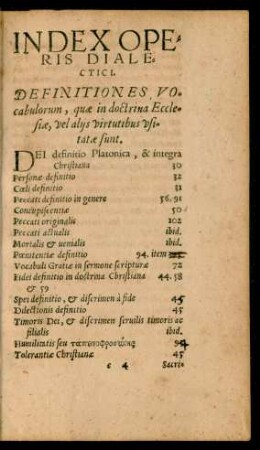 INDEX OPE-
RIS DIALE-
CTICI.
DEFINITIONES, VO-
cabulorum, quæ in doctrina Eccle-
siæ, vel alijs virtutibus vsi-
tatæ sunt.
DEI definitio Platonica, & integra
Christiana 30
Personæ definitio 32
Cœli definitio 31
Peccati definitio in genere 56. 91
Concupiscentiæ 50
Peccati originalis 102
Peccati actualis ibid.
Mortalis & uenialis ibid.
Pœnitentiæ definitio 94. item
Vocabuli Gratiæ in sermone scripturæ 72
Fidei definitio in doctrina Christiana 44. 58
& 59
Spei definitio, & discrimen à fide 45
Dilectionis definitio 45
Timoris Dei, & discrimen seruilis timoris ac
filialis ibid.
Humilitatis seu 94
Tolerantiæ Christianæ 45
c 4 Sacri-